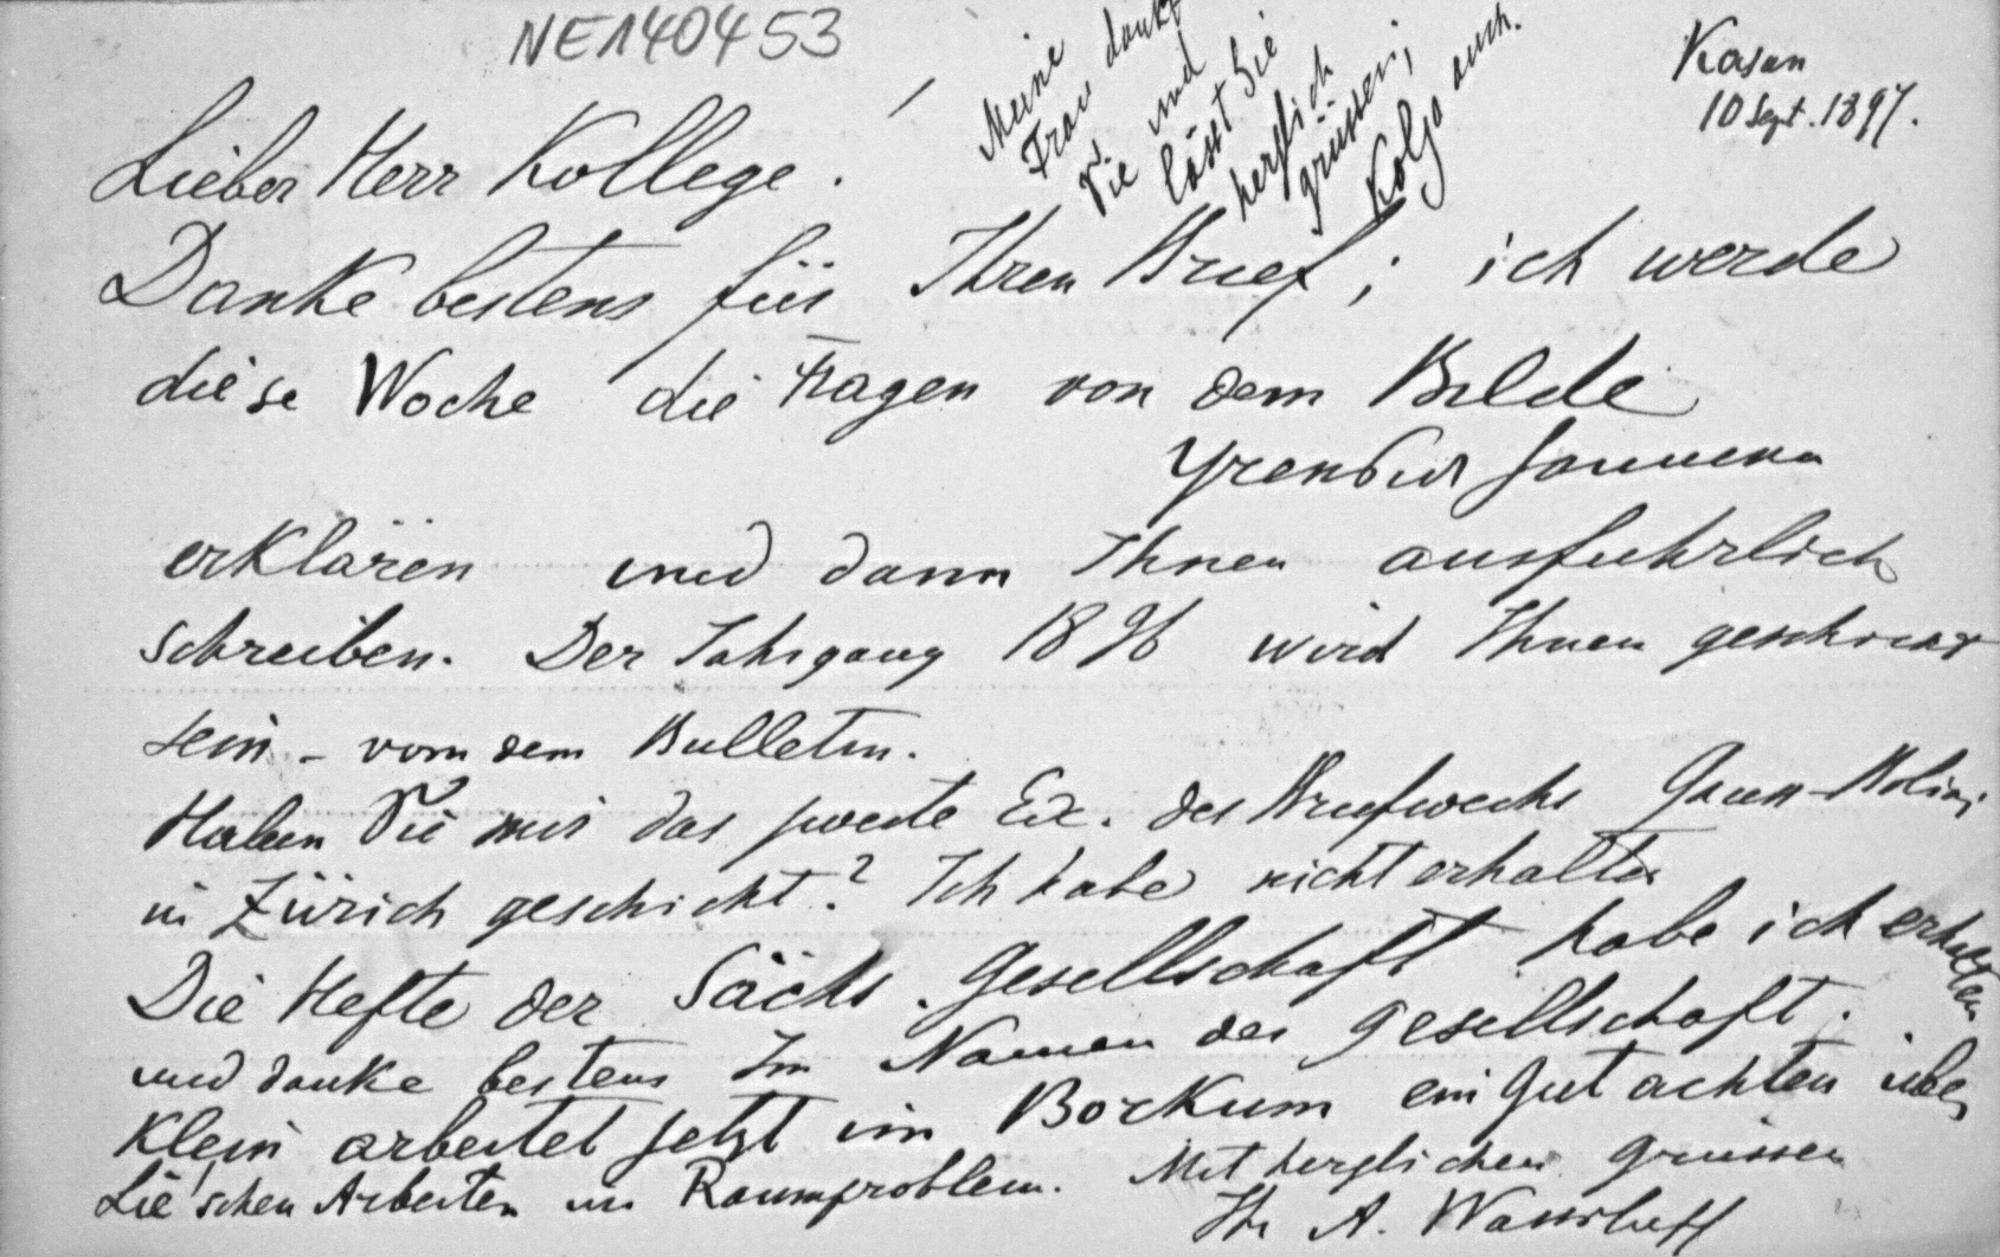 NE140453
Kasan
10 Sept. 1897.
Meine
Frau dankt
Sie und
lässt Sie
herzlich
grüssen;
Kolja auch.
Lieber Herr Kollege.
Danke bestens für Ihren Brief; ich werde
diese Woche die Fragen von dem Bilde
erklären und dann Ihnen ausfuhrlich
schreiben. Der Jahrgang 1896 wird Ihnen geschickt
sein - vom dem Bulletin.
Haben Sie mir das zweite Ex. des Briefwechs Gauss-Bolyai
in Zürich geschickt? Ich habe nicht erhalten
Die Hefte der Sächs. Gesellschaft habe ich erhalten
und danke bestens Im Namen der Gesellschaft.
Klein arbeitet jetzt in Borkum ein Gutachten über
Lie'schen Arbeiten im Raumproblem. Mit herzlichen Grüssen
Ihr A. Wassilieff